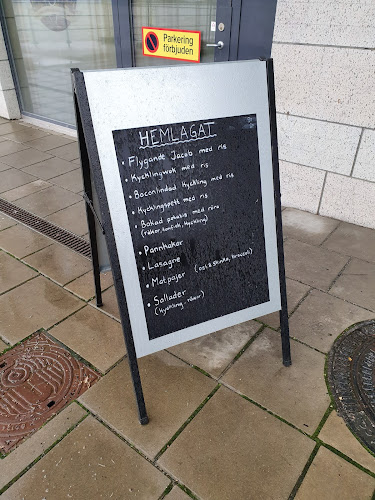 Parkering
förbjuden
HEMLAGAT
• Flygande Jacob med ris
• Kycklingwok med ris
• Baconlindad Kyckling med ris
• Kycklingspett med ris
• Bakad potatis med röra
(räkor, tonfisk, kyckling)
• Pannkakor
• Lasagne
• Matpajer (ost & skinka, broccoli)
• Sallader
(kyckling, räkor)